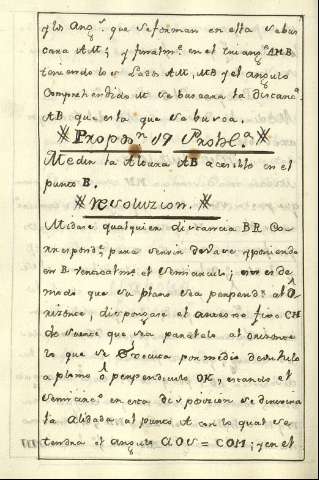 y los Angs. que se forman en esta se bus
cara AM; y finalme. en el triango. AMB
teniendo los Lads AM, MB y el angulo
Comprehendido M se buscara la distana.
AB que es la que se busca.
Propon. 17 Probla.
Medir la Altura AB accesible en el
punto B.
Revoluzion.
Midase qualquier distancia BR Co-
rrespondte. para servir de Vase y poniendo
en R verticalmte. el semicirculo;
modo que su plano sea perpendr. al O-
rizonte, dispongase el anteojo fixo CM
de suerte que sea paralelo al orizonte
lo que se Executa por medio del hilo
a plomo ó perpendiculo OK, estando el
semicirco. en esta disposizion se dirigira
la alidada al punto A con lo qual se
tendra el angulo AOV = COM; y en el